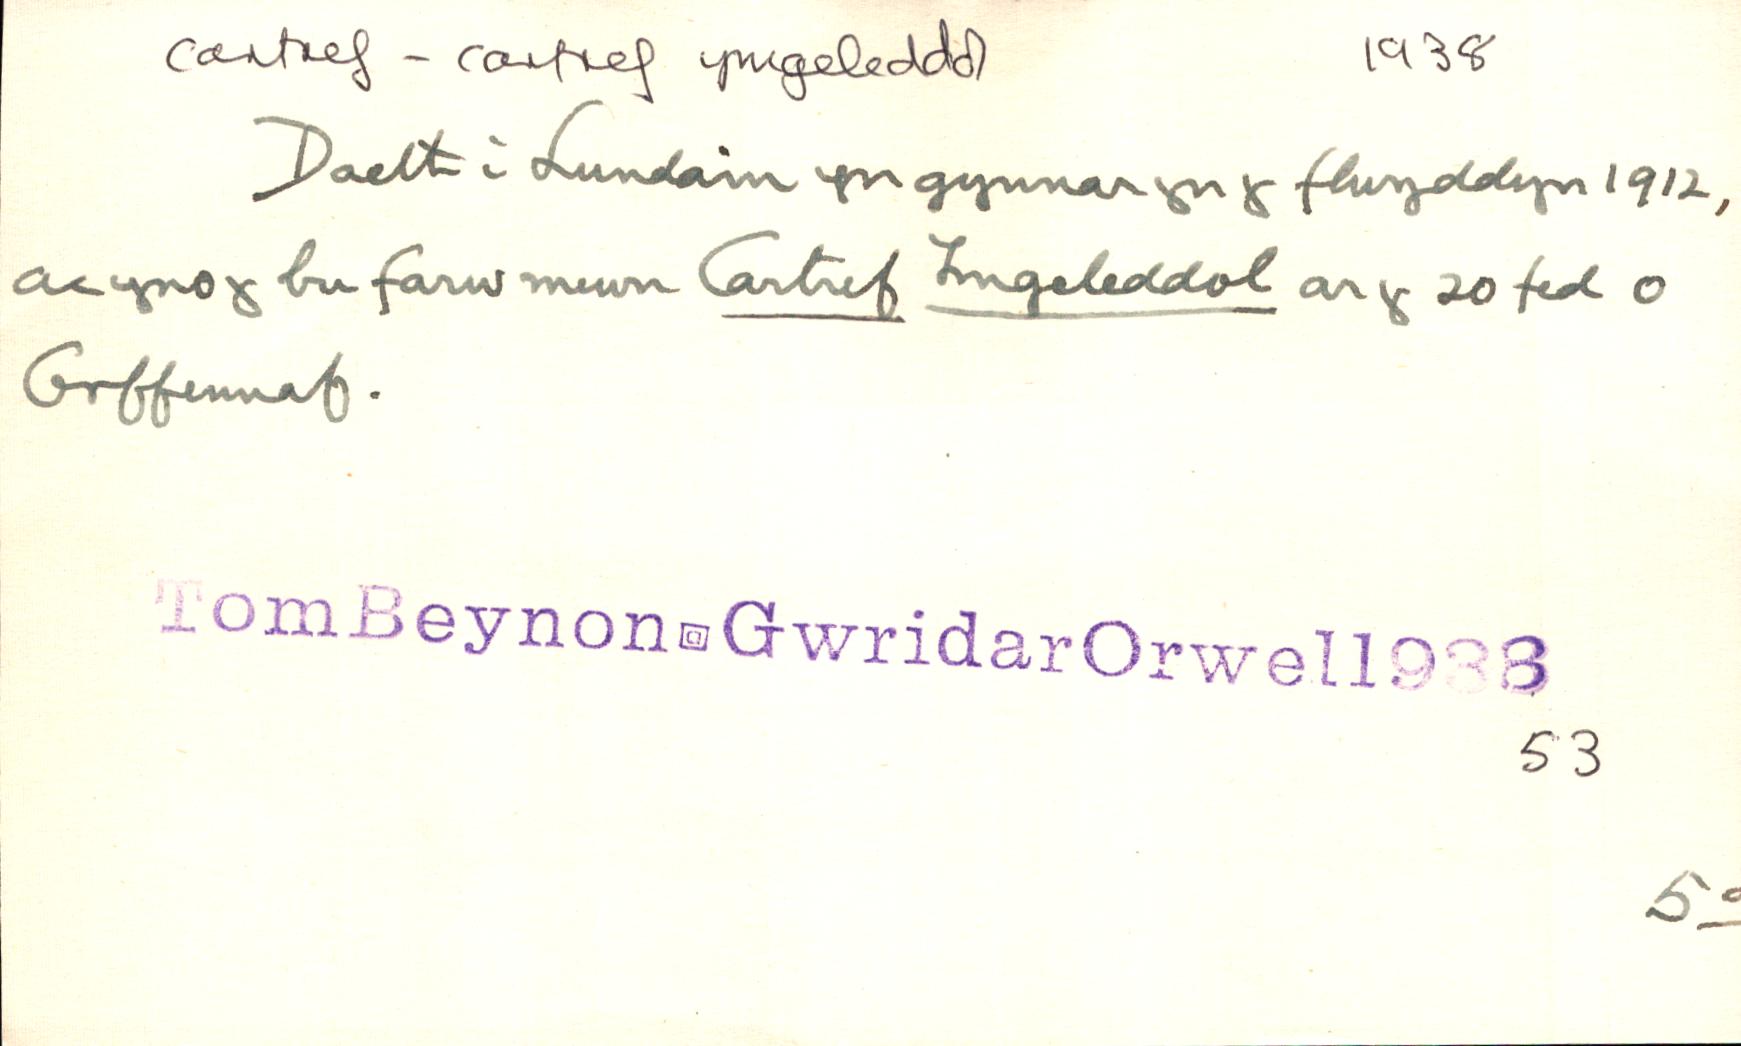 cartref - cartref ymgeleddol 1938
Daeth i Lundain yn gynnar yn y flwyddyn 1912,
ac yno y bu farw mewn Cartref Ymgeleddol ar y 20fed o
Orffennaf.
Tom Beynon Gwridar Orwel 1938
53
5